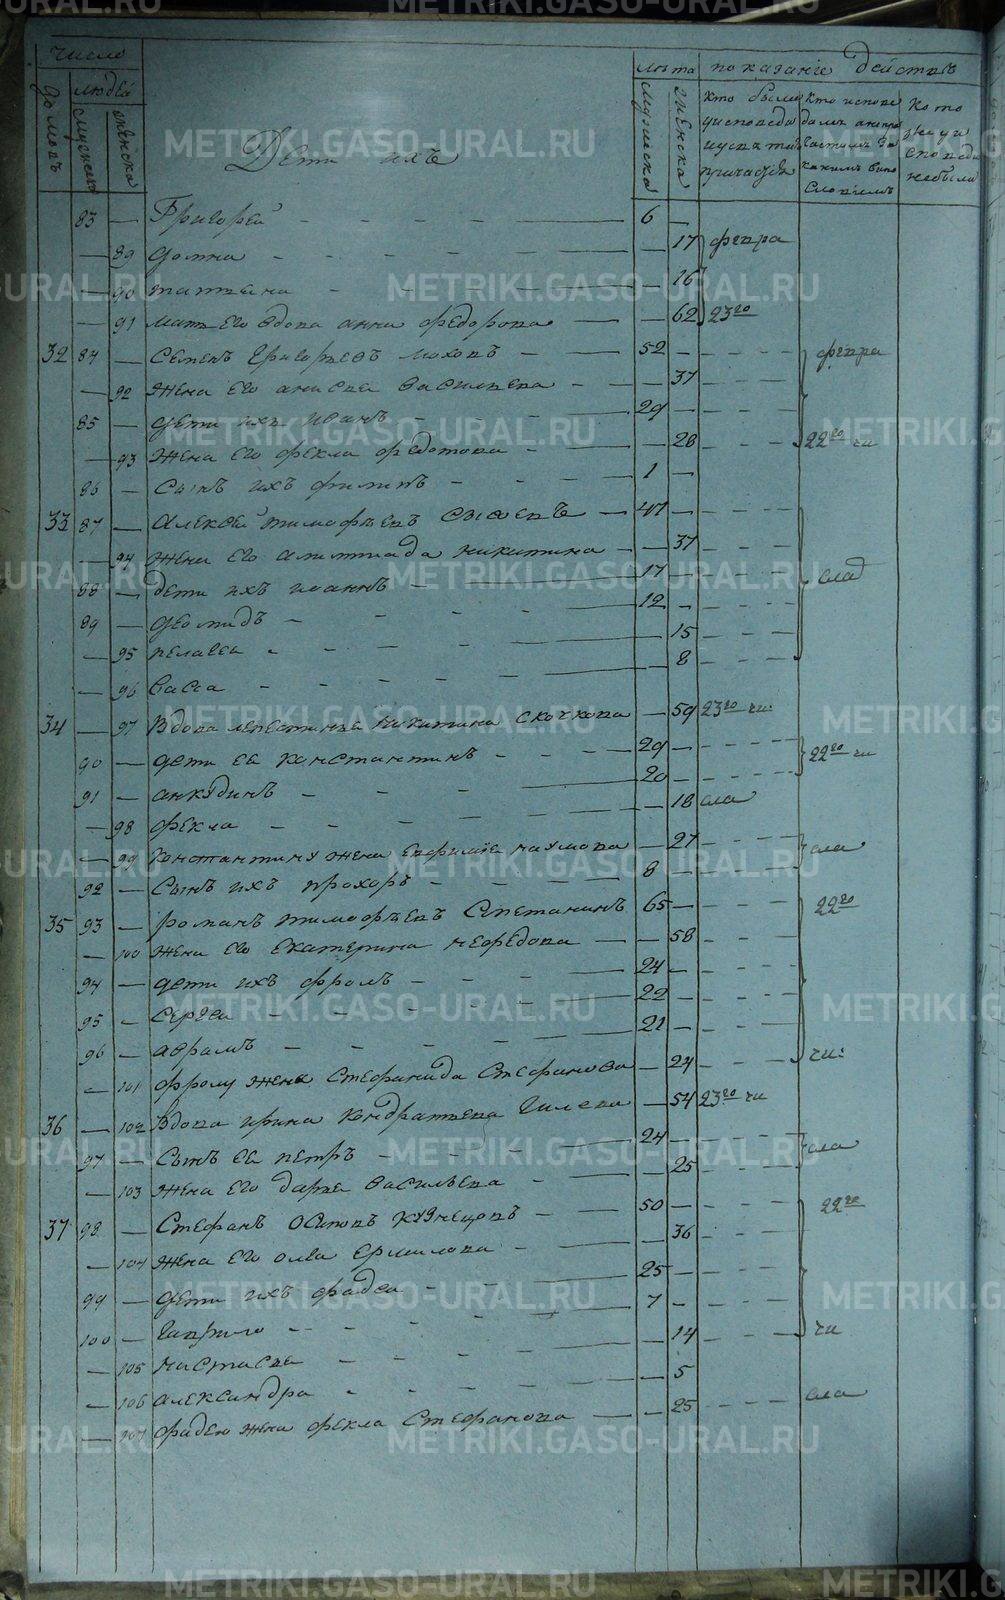 число
людей
лѣта показанiе действъ
домовъ
мужеска
женска
Дети ихъ
кто были у исповеди и св. причастiя
кто исповедалъ а не причастилъ за какимъ винословiемъ
кто же у исповеди не былъ
83 — Григорей — 6 —
— 89 домна — — 17 февра
— 90 татьяна — — 16
— 91 мать его вдова анна федорова — — 62 23го
32 84 — Семенъ Григорьевъ моховъ — 52 — февра
— 92 жена его анисья васильева — — 37
85 — дети ихъ иванъ — 29 —
— 93 жена его фекла федотова — — 28 22го чи
86 — Сынъ ихъ филипъ — 1 —
33 87 — Алексей тимофѣевъ — 47 —
— 94 жена его никитина — — 37
88 — дети ихъ иоаннъ — 17 — сла
89 — деомидъ — 12 —
— 95 пелагея — — 15
— 96 васса — — 8
34 — 97 Вдова никитина скочкова — 59 23го чи
90 — дети ея константинъ — 29 — 22го чи
91 — анкудинъ — 20 —
— 98 фекла — — 18 сла
— 99 константину жена ефимiя наумова — 27 сла
92 — Сынъ ихъ прохоръ — 8 —
35 93 — романъ тимофѣевъ Слетанинъ 65 — 22го
— 100 жена его екатерина нефедова — — 58
94 — дети ихъ фролъ — 24 —
95 — Сергеи — 22 —
96 — аврамъ — 21 —
— 101 фролу жена Стефанида Стефанова — 24 чи:
36 — 102 Вдова ирина кондратьева Гилева — 54 23го чи
97 — Сынъ ея петръ — 24 — сла
— 103 жена его дарья васильева — — 25
37 98 — Стефанъ осиповъ кузнецовъ — 50 — 22го
— 104 жена его олга ермилова — — 36
99 — дети ихъ фадеи — 25 —
100 — Гаврило — 7 — чи
— 105 настасья — — 14
— 106 александра — — 5
— 107 фадею жена фекла Стефанова — — 25 сла
METRIKI.GASO-URAL.RU